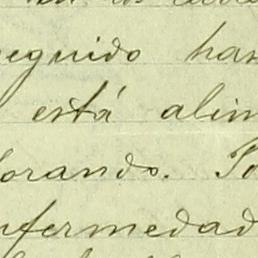 seguido has
está alim
orando. Po
nfermedad